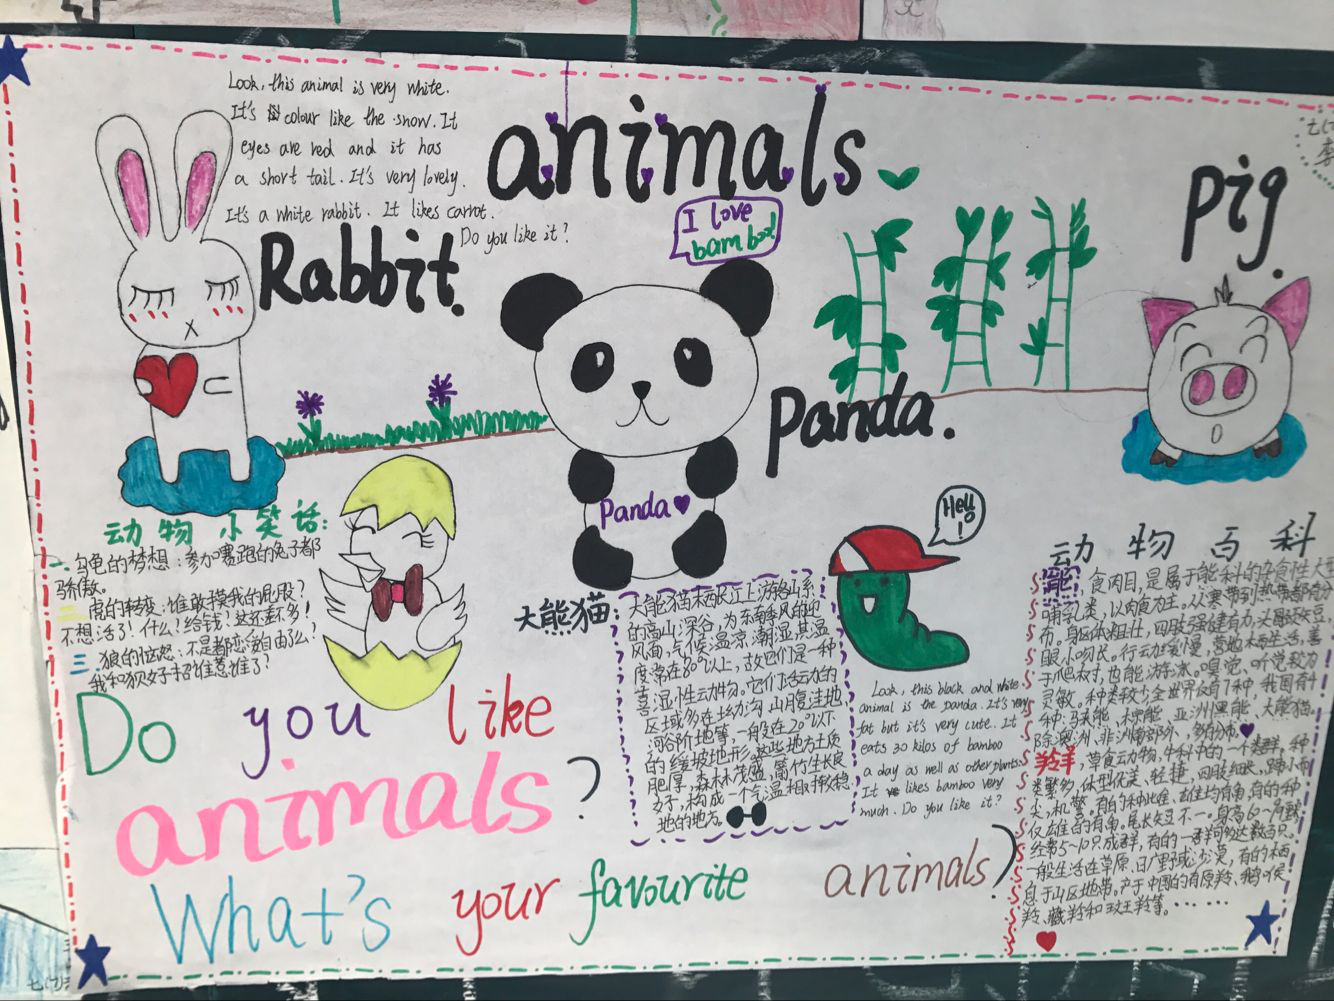 animals
Look, this animal is very white.
It's colour like the snow. It
eyes are red and it has
a short tail. It's very lovely.
It's a white rabbit. It likes carrot.
Do you like it?
Rabbit.
I love
bamboo!
Pig.
Panda.
Panda
Hello
!
动物小笑话:
一.乌龟的梦想:参加赛跑的兔子都
骄傲。
二.虎的转变:谁敢摸我的屁股?
不想活了!什么!给钱!这还差不多!
三.狼的恼怒:不是都恋爱自由了么?
我和狈好招谁惹谁了?
大熊猫
大熊猫栖长江上游各山系
的高山深谷,为东南季风的迎
风面,气候温凉潮湿,其湿
度常在80%以上,故它们是一种
喜湿性动物。它们活动的
区域多在坳沟、山腹洼地、
河谷阶地等,一般在20°以下
的缓坡地形。这些地方土质
肥厚,森林茂盛,箭竹生长良
好,构成一个气温相对较稳
地的地方。
Look, this black and white
animal is the panda. It's very
fat but it's very cute. It
eats 30 kilos of bamboo
a day as well as other plants.
It likes bamboo very
much. Do you like it?
动物百科
熊,食肉目,是属于熊科的杂食性大型
哺乳类,以肉食为主。从寒带到热带都有分
布。躯体粗壮,四肢强健有力,头圆颈短,
眼小吻长。行动缓慢,营地栖生活,善
于爬树,也能游泳。嗅觉、听觉较为
灵敏。种类较少,全世界仅有7种,我国有4
种:马来熊、棕熊、亚洲黑熊、大熊猫。
除澳洲、非洲南部外,多有分布。
羚羊,草食动物,牛科中的一个类群。种
类繁多,体型优美、轻捷,四肢细长,蹄小而
尖,机警,有的种雌、雄均有角,有的种
仅雄有角。尾长短不一。
经常5~10只成群,有的一群可多达数百只。
一般生活在草原、旷野或沙漠,有的栖
息于山区地带。产于中国的有原羚、鹅喉
羚、藏羚和斑羚等。……
Do you like
animals?
What's your favourite animals?
七(7)